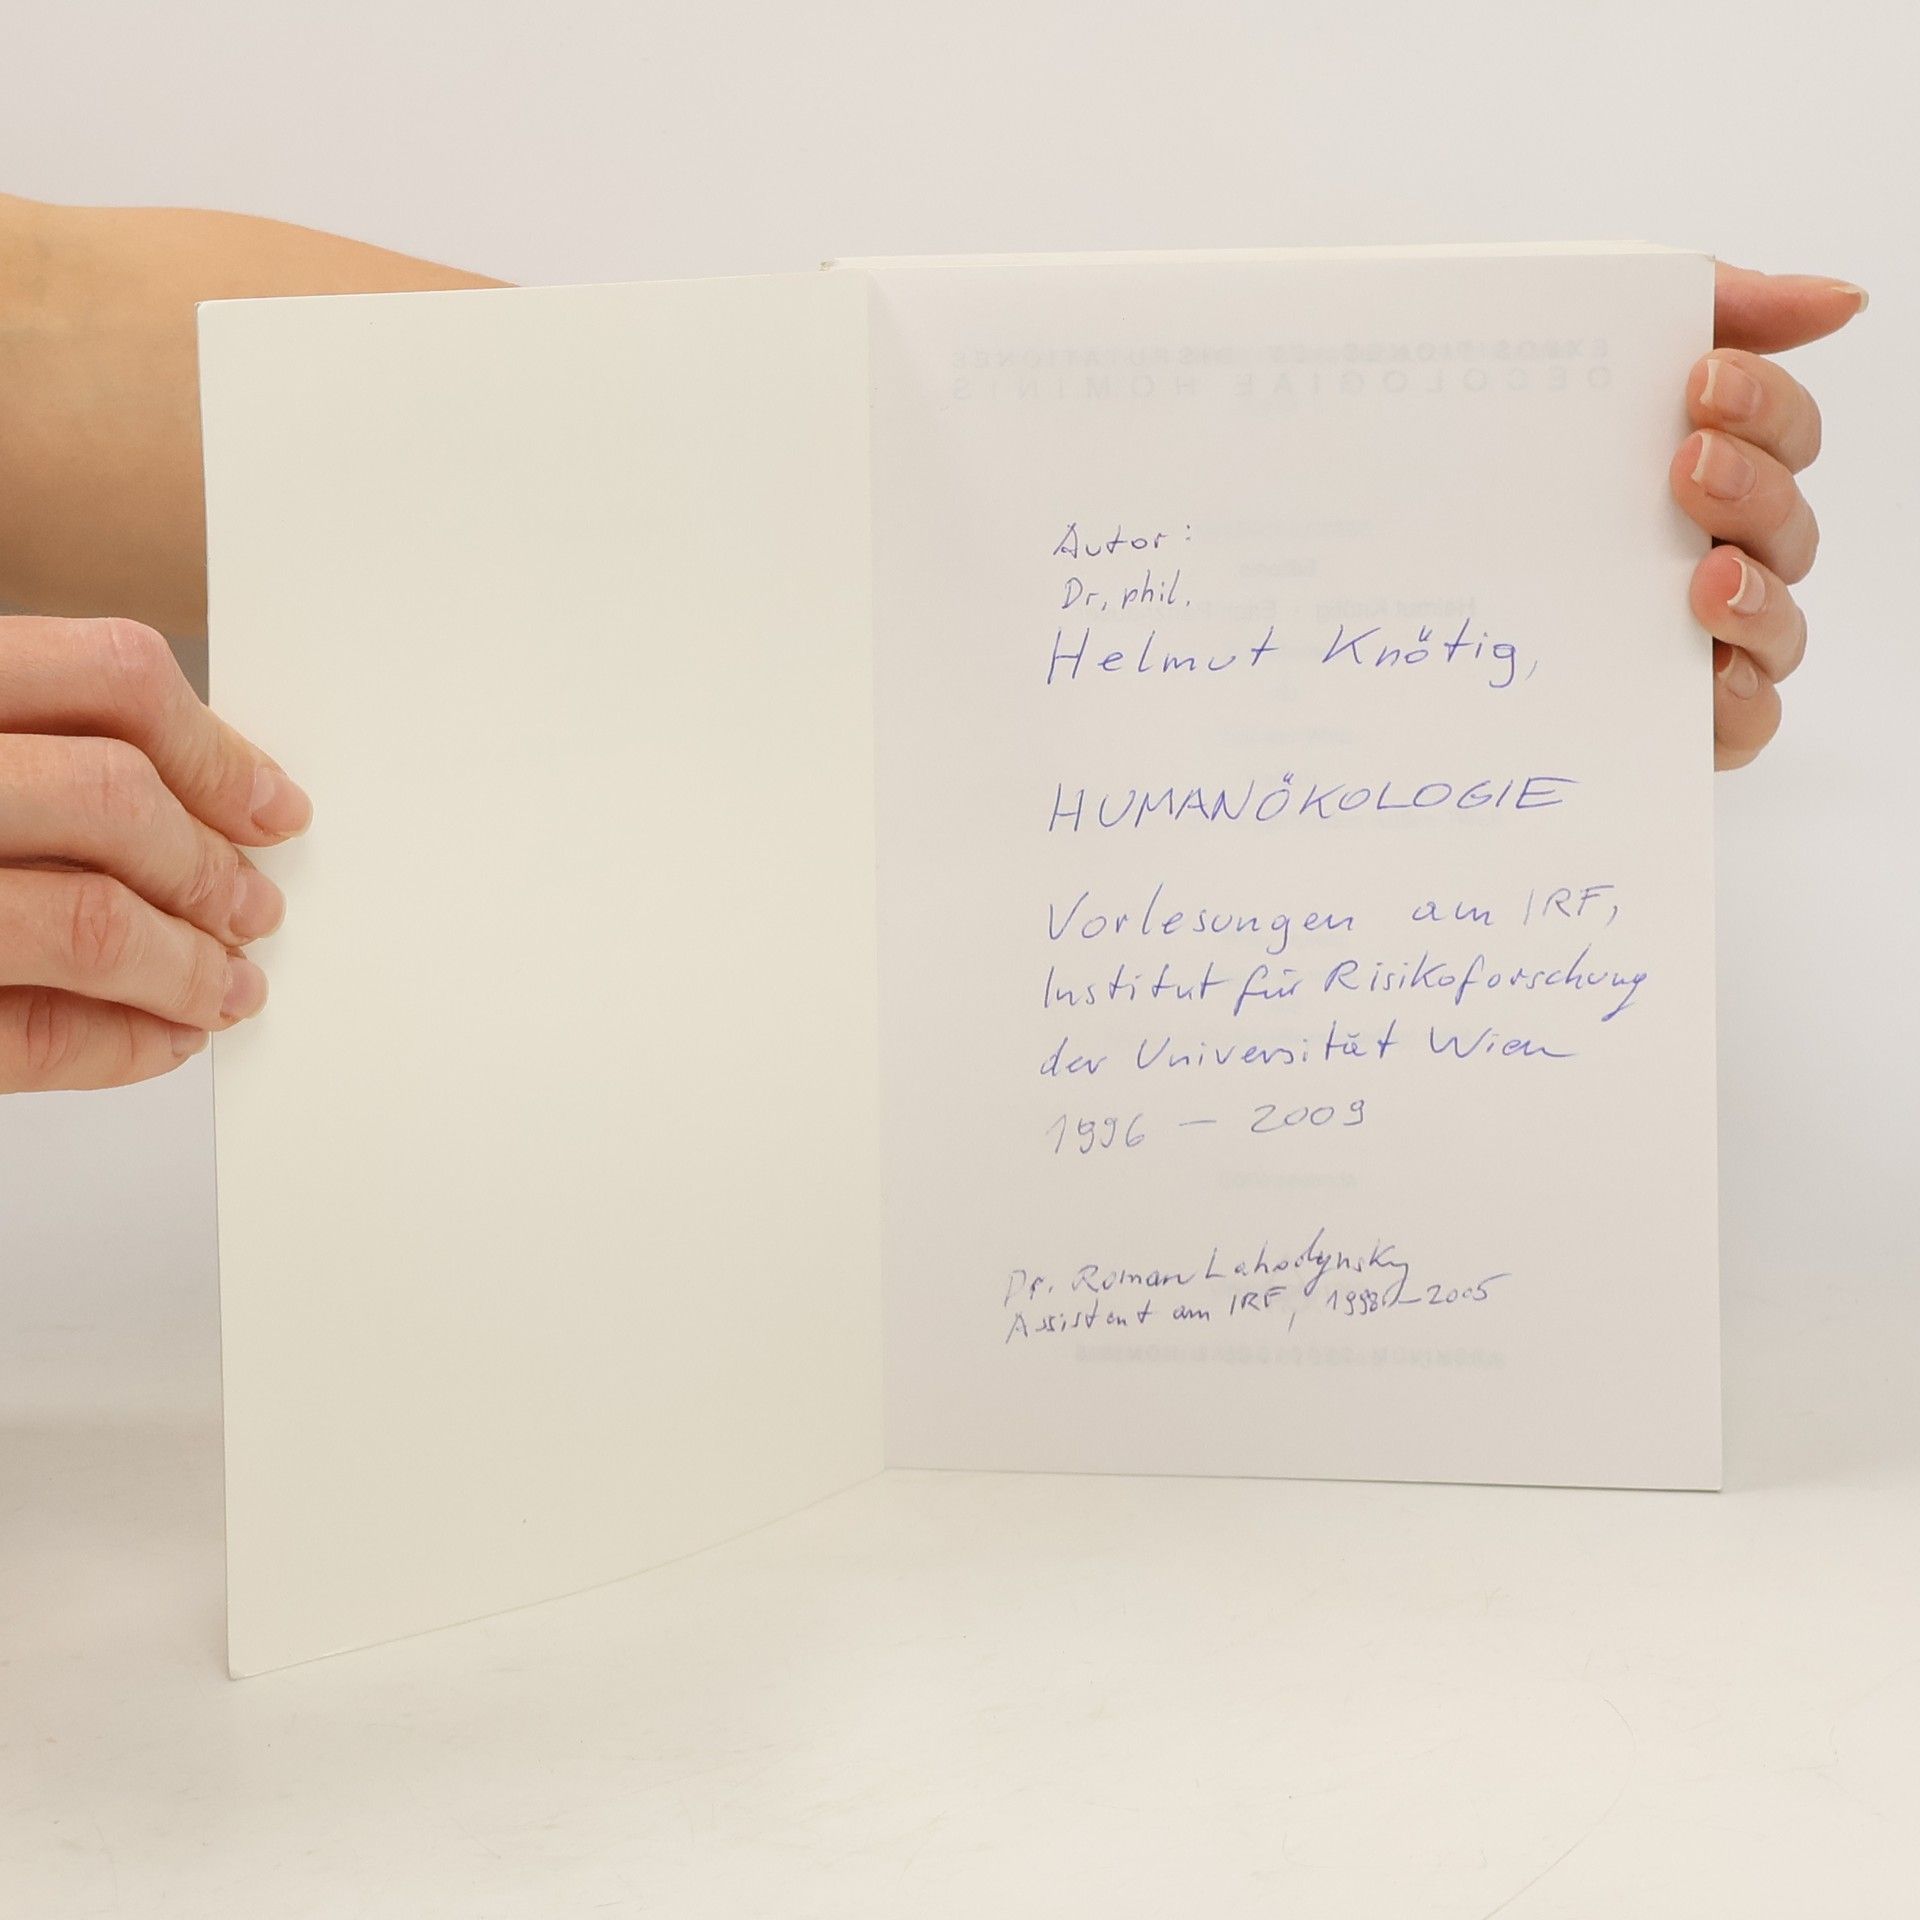 Autor:
Dr. phil.
Helmut Knötig,
HUMANÖKOLOGIE
Vorlesungen am IRF,
Institut für Risikoforschung
der Universität Wien
1996 – 2009
Dr. Roman Lahodynsky
Assistent am IRF, 1998–2005